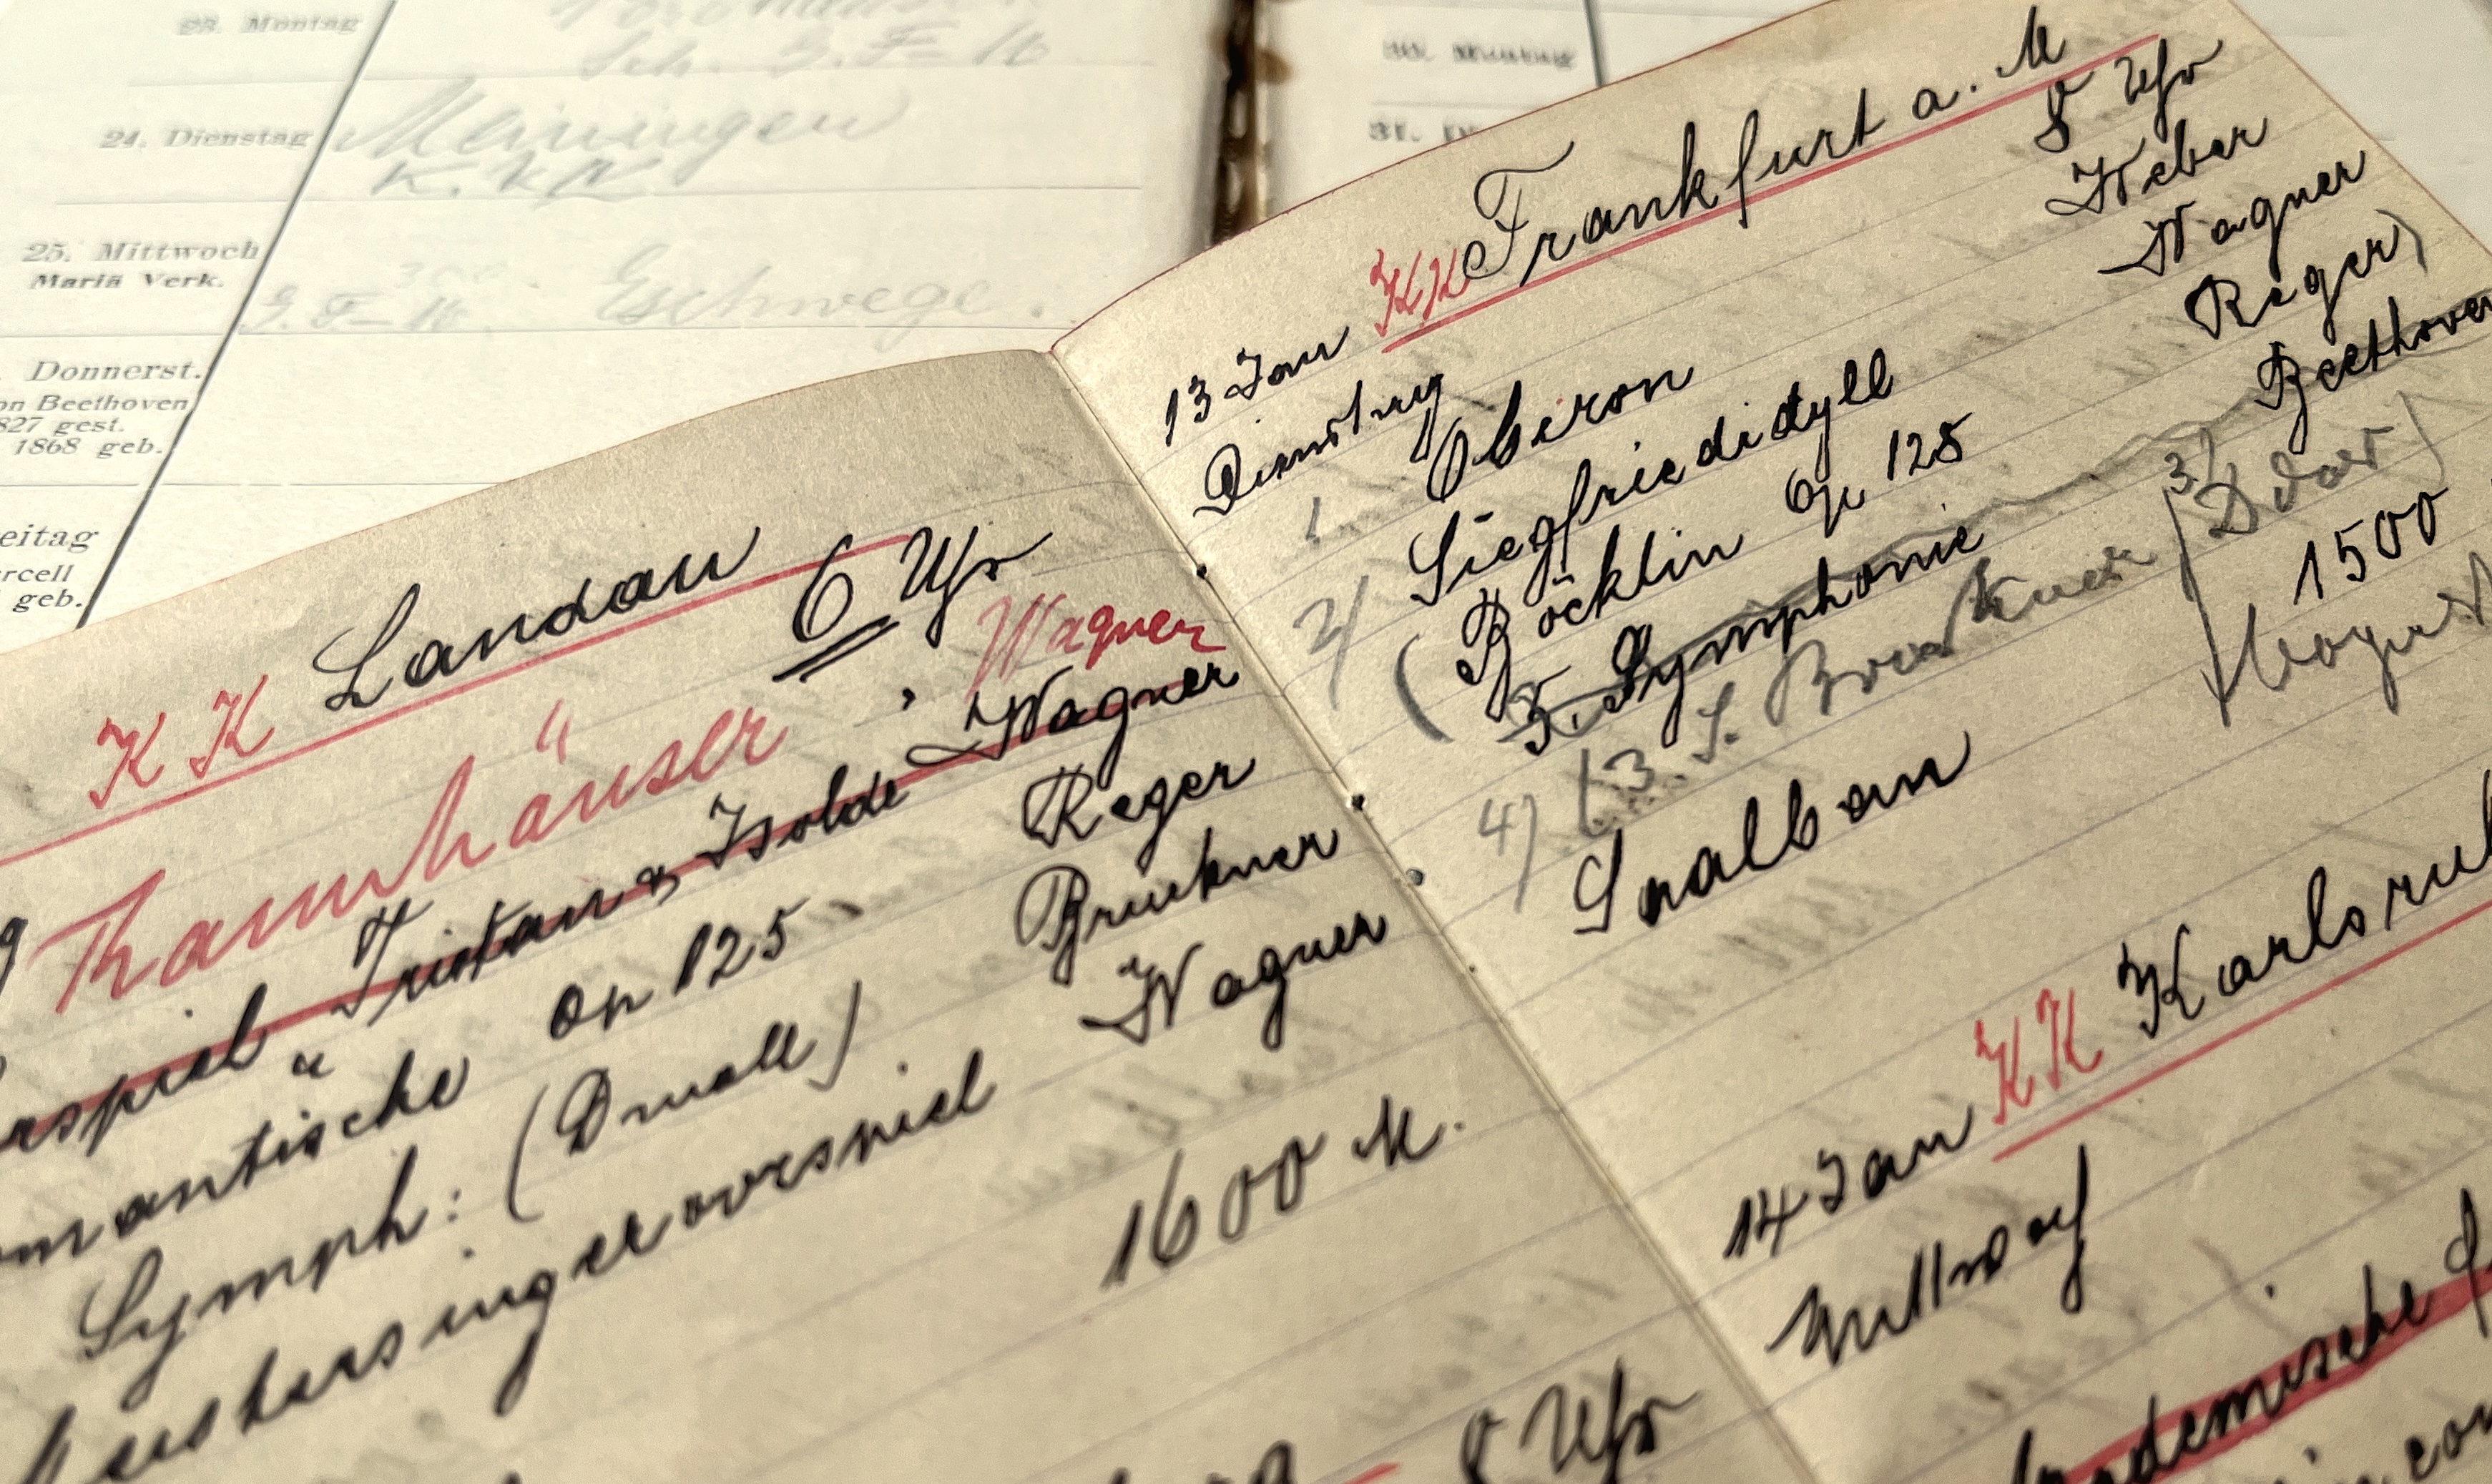 23. Montag
24. Dienstag Meiningen
K. K
25. Mittwoch
Mariä Verk. Eschwege.
Donnerst.
on Beethoven
827 gest.
1868 geb.
eitag
rcell
geb.
30. Montag
31.
K K Landau 6 Uhr
Thannhäuser " Wagner
rspiel Tristan & Isolde Wagner
mantische op 125 Reger
Symph: ( ) Bruckner
eistersingervorspiel Wagner
1600 M.
8 Uhr
13 Jan KK Frankfurt a. M
Dienstag 8 Uhr
1 Oberon Weber
2) Siegfriedidyll Wagner
( Böcklin op 128 Reger)
5. Symphonie Beethoven
4) (3. S. Bruckner 3) D dur)
Saalbau 1500
14 Jan KK Karlsruh
Mittwoch
ademische